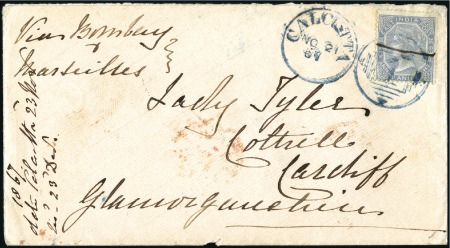 Via Bombay
Marseilles
CALCUTTA
NO 21
67
INDIA
Lady Tyler
Cottrell
Cardiff
Glamorganshire
1867
Calcutta 23
23